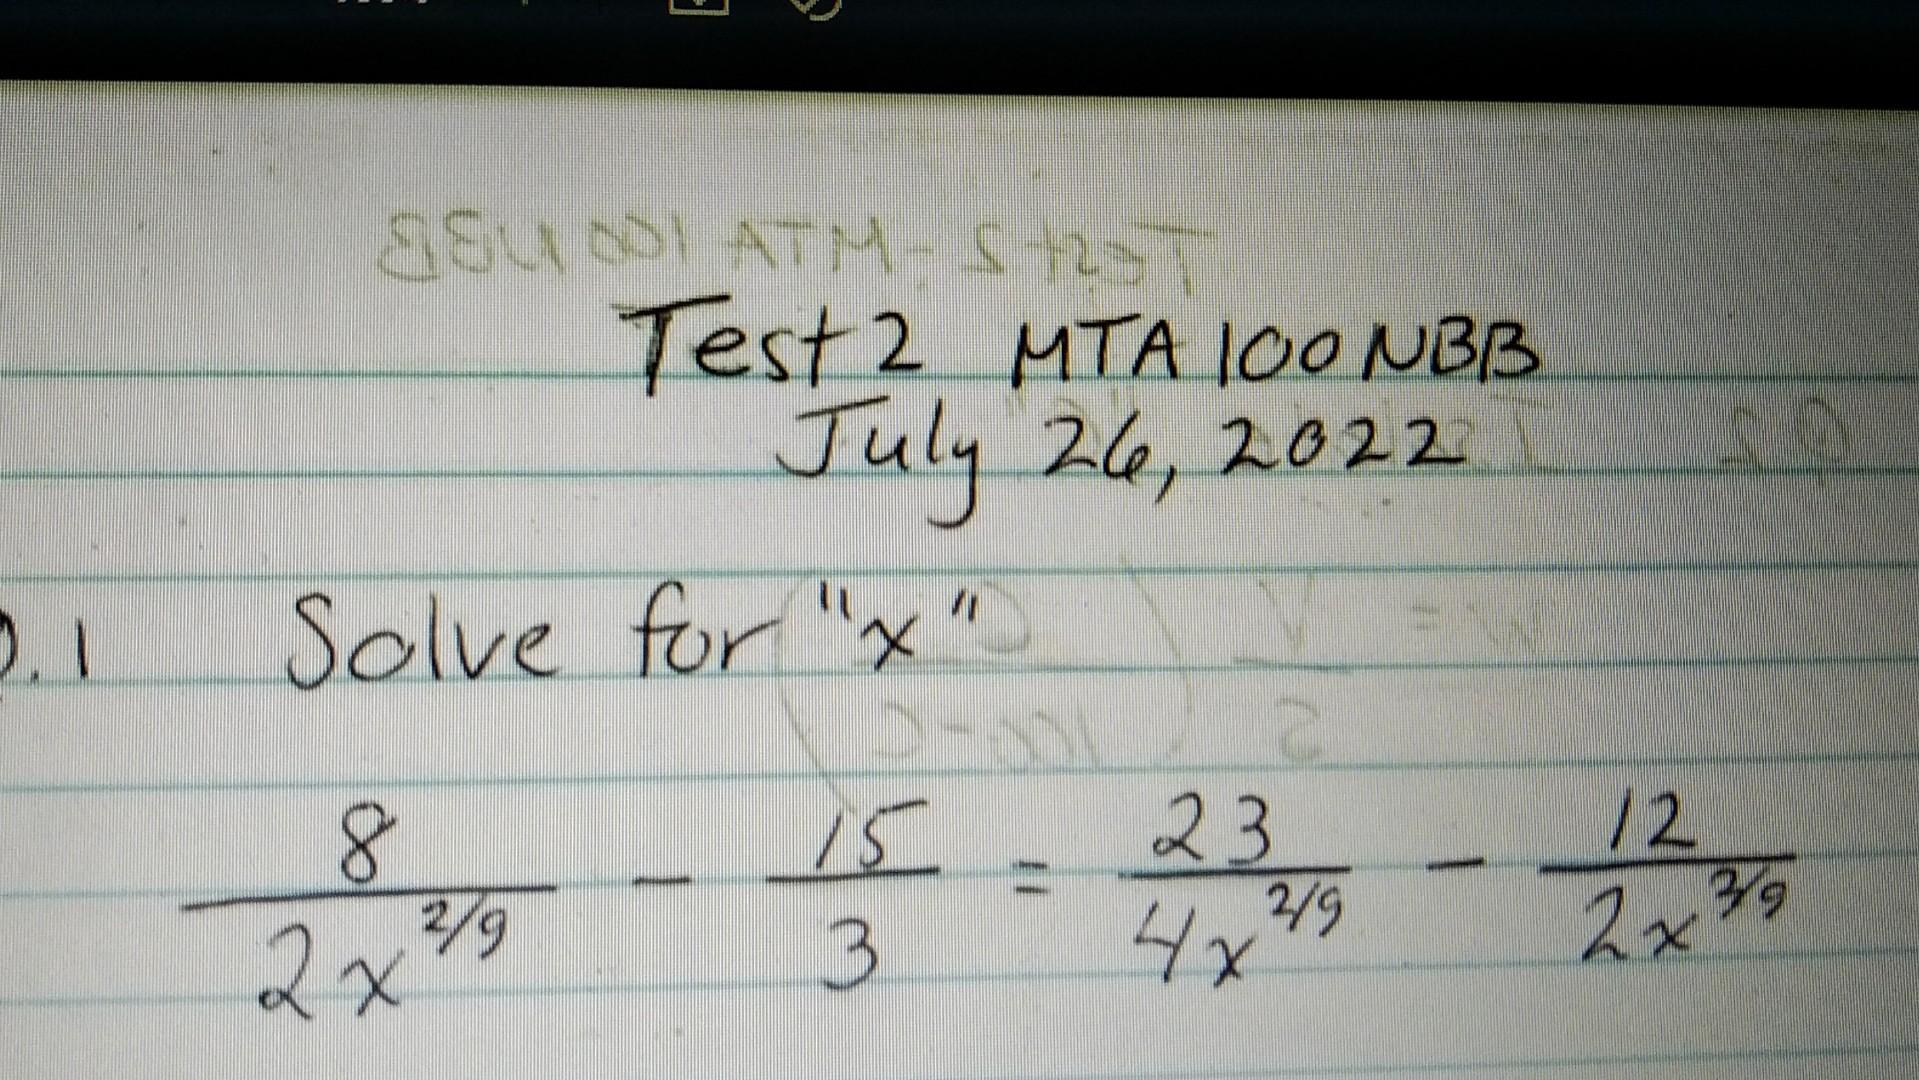 Test 2 MTA 100 NBB
July 26, 2022
.1 Solve for "x"
8/2x^2/9 - 15/3 = 23/4x^2/9 - 12/2x^2/9